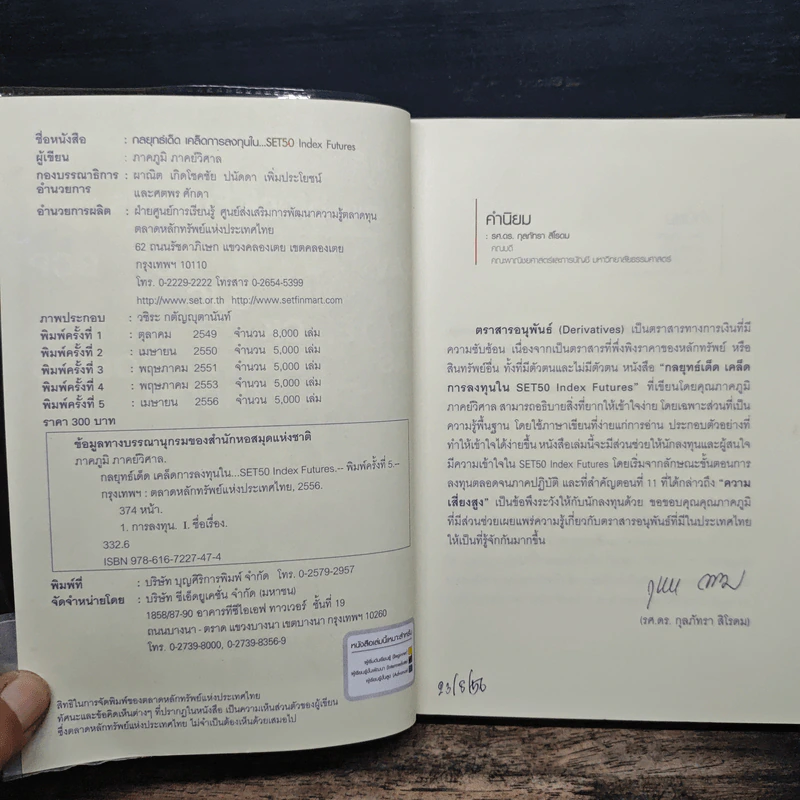 ชื่อหนังสือ : กลยุทธ์เด็ด เคล็ดการลงทุนใน...SET50 Index Futures
ผู้เขียน : ภาคภูมิ ภาคย์วิศาล
กองบรรณาธิการ : ผาณิต เกิดโชคชัย ปนัดดา เพิ่มประโยชน์
อำนวยการ และศตพร ศักดา
อำนวยการผลิต : ฝ่ายศูนย์การเรียนรู้ ศูนย์ส่งเสริมการพัฒนาความรู้ตลาดทุน
ตลาดหลักทรัพย์แห่งประเทศไทย
62 ถนนรัชดาภิเษก แขวงคลองเตย เขตคลองเตย
กรุงเทพฯ 10110
โทร. 0-2229-2222 โทรสาร 0-2654-5399
http://www.set.or.th http://www.setfinmart.com
ภาพประกอบ : วชิระ กตัญญุตานันท์
พิมพ์ครั้งที่ 1 : ตุลาคม 2549 จำนวน 8,000 เล่ม
พิมพ์ครั้งที่ 2 : เมษายน 2550 จำนวน 5,000 เล่ม
พิมพ์ครั้งที่ 3 : พฤษภาคม 2551 จำนวน 5,000 เล่ม
พิมพ์ครั้งที่ 4 : พฤษภาคม 2553 จำนวน 5,000 เล่ม
พิมพ์ครั้งที่ 5 : เมษายน 2556 จำนวน 5,000 เล่ม
ราคา 300 บาท
ข้อมูลทางบรรณานุกรมของสำนักหอสมุดแห่งชาติ
ภาคภูมิ ภาคย์วิศาล.
กลยุทธ์เด็ด เคล็ดการลงทุนใน...SET50 Index Futures.-- พิมพ์ครั้งที่ 5.--
กรุงเทพฯ : ตลาดหลักทรัพย์แห่งประเทศไทย, 2556.
374 หน้า.
1. การลงทุน. I. ชื่อเรื่อง.
332.6
ISBN 978-616-7227-47-4
พิมพ์ที่ : บริษัท บุญศิริการพิมพ์ จำกัด โทร. 0-2579-2957
จัดจำหน่ายโดย : บริษัท ซีเอ็ดยูเคชั่น จำกัด (มหาชน)
1858/87-90 อาคารทีซีไอเอฟ ทาวเวอร์ ชั้นที่ 19
ถนนบางนา - ตราด แขวงบางนา เขตบางนา กรุงเทพฯ 10260
โทร. 0-2739-8000, 0-2739-8356-9
หนังสือเล่มนี้เหมาะสำหรับ
ผู้เริ่มต้นเรียนรู้ (Beginner)
สิทธิในการจัดพิมพ์ของตลาดหลักทรัพย์แห่งประเทศไทย
ทัศนะและข้อคิดเห็นต่างๆ ที่ปรากฏในหนังสือ เป็นความเห็นส่วนตัวของผู้เขียน
ซึ่งตลาดหลักทรัพย์แห่งประเทศไทย ไม่จำเป็นต้องเห็นด้วยเสมอไป
คำนิยม
: รศ.ดร. กุลภัทรา สิโรดม
คณบดี
คณะพาณิชยศาสตร์และการบัญชี มหาวิทยาลัยธรรมศาสตร์
ตราสารอนุพันธ์ (Derivatives) เป็นตราสารทางการเงินที่มี
ความซับซ้อน เนื่องจากเป็นตราสารที่พึ่งพิงราคาของหลักทรัพย์ หรือ
สินทรัพย์อื่น ทั้งที่มีตัวตนและไม่มีตัวตน หนังสือ "กลยุทธ์เด็ด เคล็ด
การลงทุนใน SET50 Index Futures" ที่เขียนโดยคุณภาคภูมิ
ภาคย์วิศาล สามารถอธิบายสิ่งที่ยากให้เข้าใจง่าย โดยเฉพาะส่วนที่เป็น
ความรู้พื้นฐาน โดยใช้ภาษาเขียนที่ง่ายแก่การอ่าน ประกอบตัวอย่างที่
ทำให้เข้าใจได้ง่ายขึ้น หนังสือเล่มนี้จะมีส่วนช่วยให้นักลงทุนและผู้สนใจ
มีความเข้าใจใน SET50 Index Futures โดยเริ่มจากลักษณะขั้นตอนการ
ลงทุนตลอดจนภาคปฏิบัติ และที่สำคัญตอนที่ 11 ที่ได้กล่าวถึง "ความ
เสี่ยงสูง" เป็นข้อพึงระวังให้กับนักลงทุนด้วย ขอขอบคุณคุณภาคภูมิ
ที่มีส่วนช่วยเผยแพร่ความรู้เกี่ยวกับตราสารอนุพันธ์ที่มีในประเทศไทย
ให้เป็นที่รู้จักกันมากขึ้น
(รศ.ดร. กุลภัทรา สิโรดม)
23/8/56